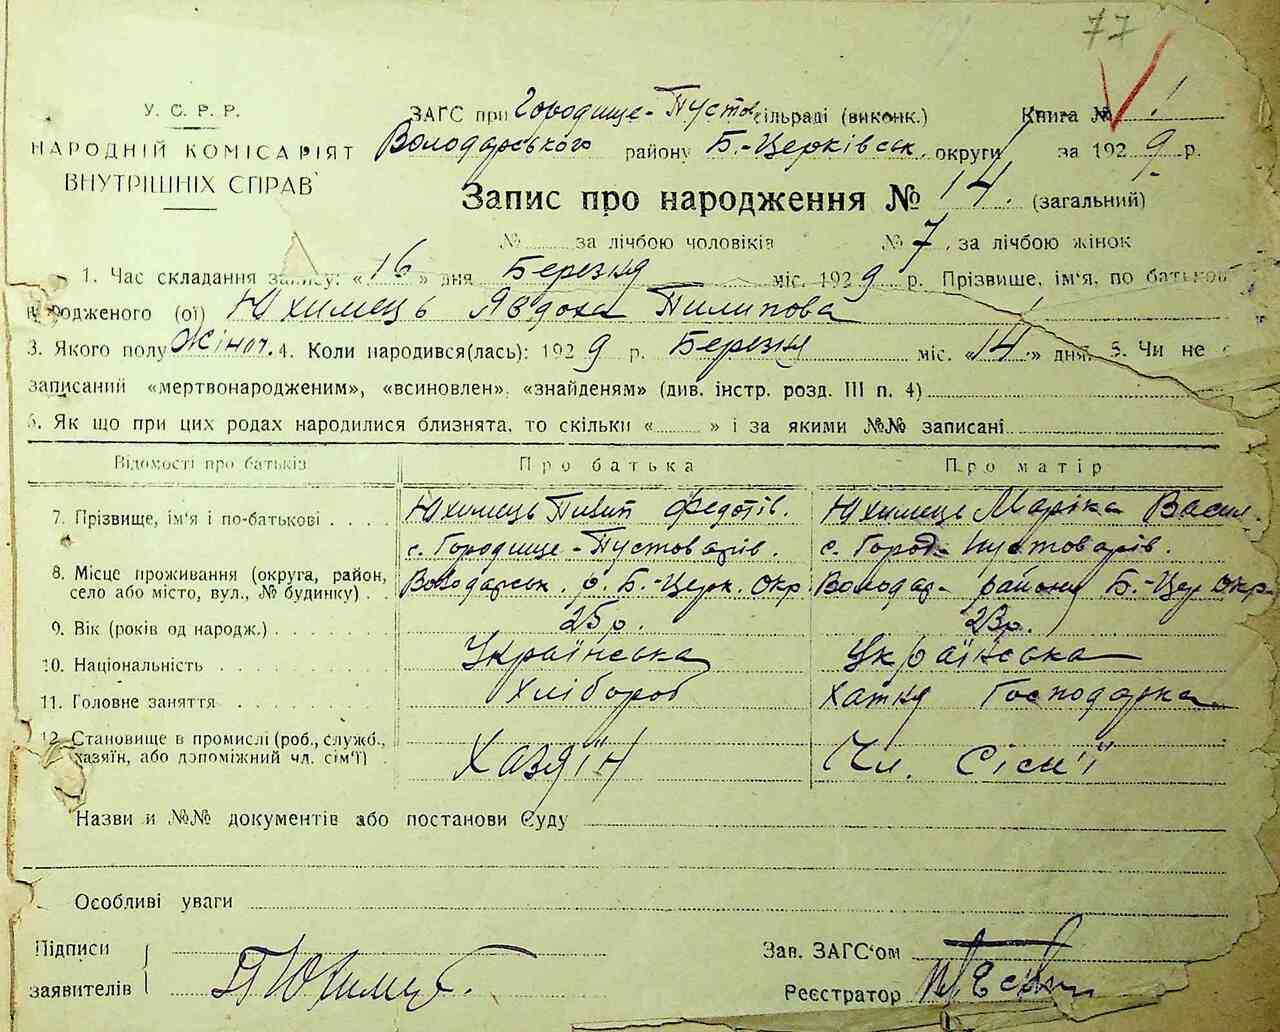 77
У. С. Р. Р.
НАРОДНІЙ КОМІСАРІЯТ
ВНУТРІШНІХ СПРАВ
ЗАГС при Городище-Пустов. сільраді (виконк.) Книга № 1
Володарського району Б.-Церківськ. округи за 1929 р.
Запис про народження № 14. (загальний)
№ за лічбою чоловіків № 7. за лічбою жінок
1. Час складання запису: «16» дня Березня міс. 1929 р. Прізвище, ім'я, по батькові
народженого (ої) Юхимець Явдоха Пилипова
3. Якого полу Жіноч. 4. Коли народився(лась): 1929 р. Березня міс. «14» дня. 5. Чи не є
записаний «мертвонародженим», «всиновлен», «знайденям» (див. інстр. розд. III п. 4)
6. Як що при цих родах народилися близнята, то скільки « » і за якими №№ записані
Відомості про батьків Про батька Про матір
7. Прізвище, ім'я і по-батькові Юхимець Пилип Федотів. Юхимець Маріка Васил.
с. Городище-Пустоварів. с. Город-Пустоварів.
8. Місце проживання (округа, район, село або місто, вул., № будинку) Володарськ. р. Б.-Церк. Окр. Володар- района Б.-Цер Окр-
9. Вік (років од народж.) 25 р. 23 р.
10. Національність Українська Українська
11. Головне заняття Хлібороб Хатня Господарка
12. Становище в промислі (роб., служб., хазяїн, або допоміжний чл. сім'ї) Хазяїн Чл. Сісм'ї
Назви й №№ документів або постанови Суду
Особливі уваги
Підписи
заявителів П Юхимець.
Зав. ЗАГС'ом
Реєстратор